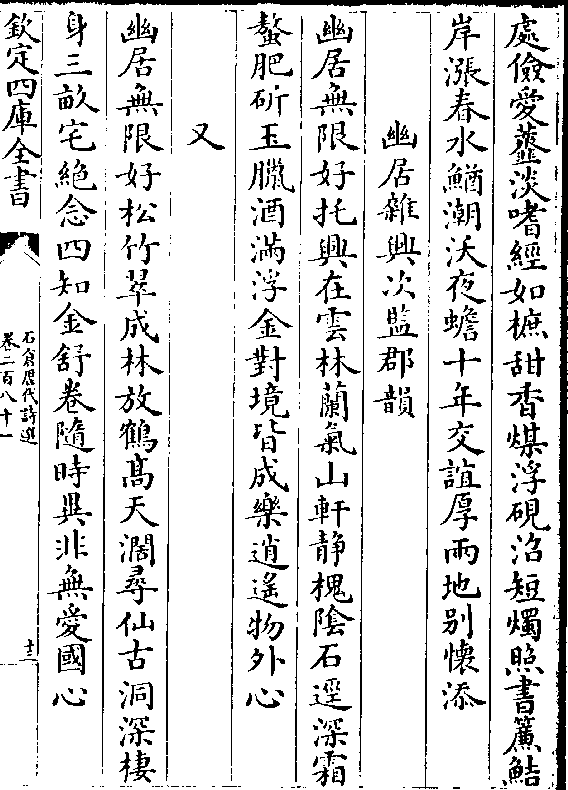 處儉愛虀淡嗜經如樜甜香煤浮硯沼短燭照書簾鮚
岸漲春水鰌潮沃夜蟾十年交誼厚兩地别懷添
幽居雜興次監郡韻
幽居無限好托興在雲林蘭氣山軒静槐陰石逕深霜
螯肥斫玉臘酒滿浮金對境皆成樂逍遙物外心
又
幽居無限好松竹翠成林放鶴髙天濶尋仙古洞深棲
身三畝宅絶念四知金舒卷隨時異非無愛國心
欽定四庫全書
石倉歴代詩選
卷二百八十一
十三